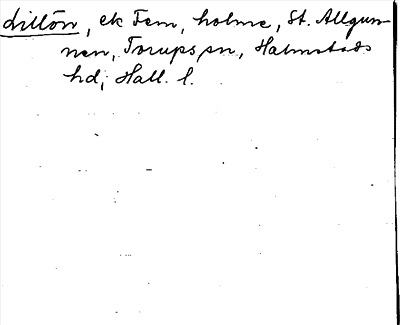 Lillön, ek Fem, holme, St. Allgun-
nen, Torups sn, Halmstads
hd, Hall. l.